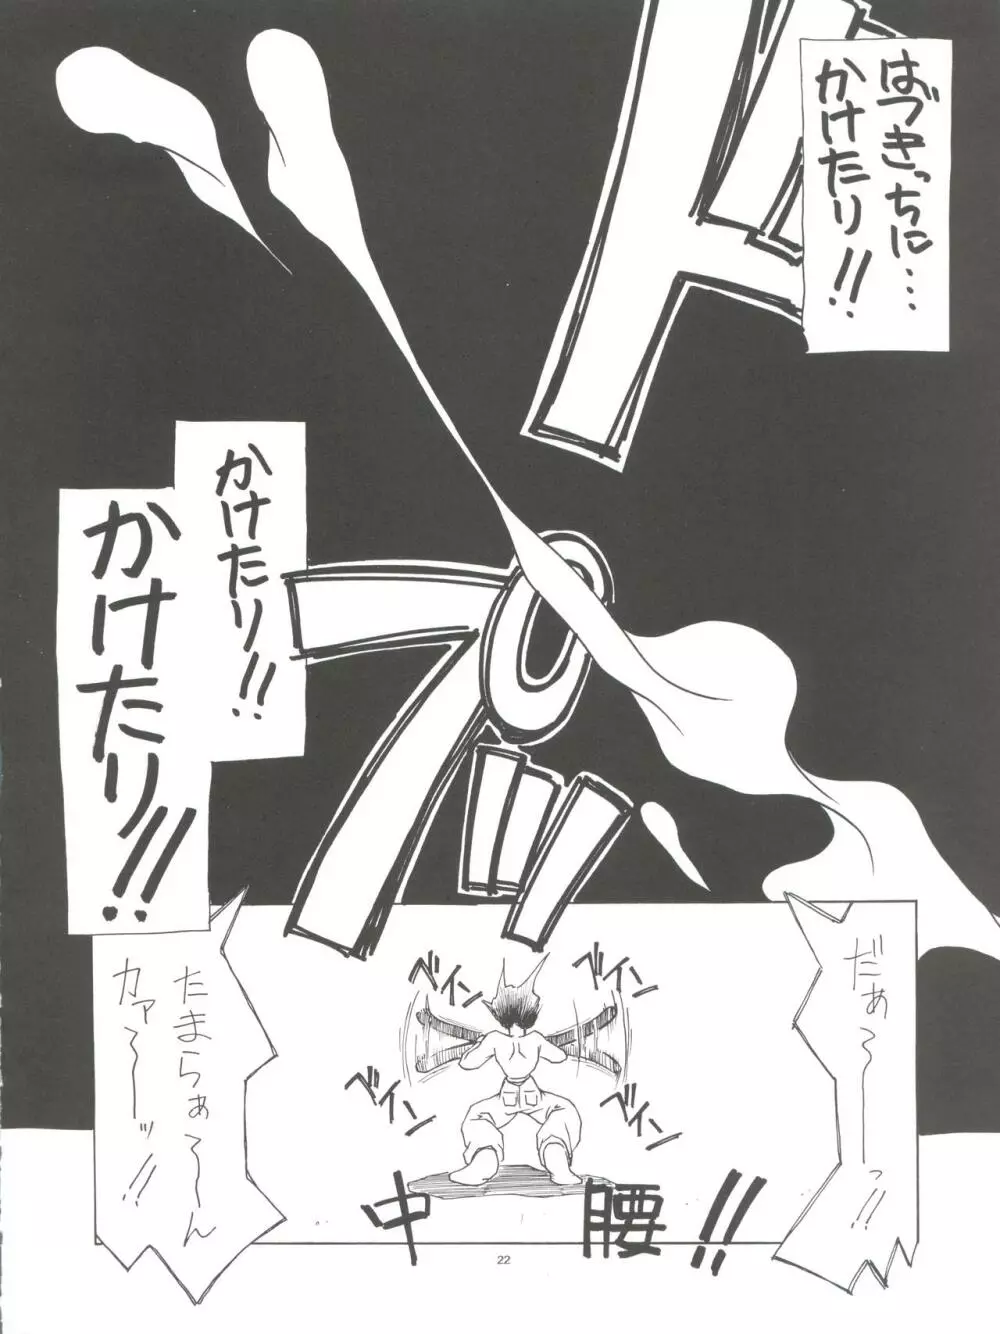 はづきっちに…
かけたり!!
かけたり!!
かけたり!!
ドプ
ベイン
ベイン
ベイン
ベイン
だぁ〜〜っ!!
たまらぁ〜〜ん
カァ〜〜ッ!!
中腰!!
22